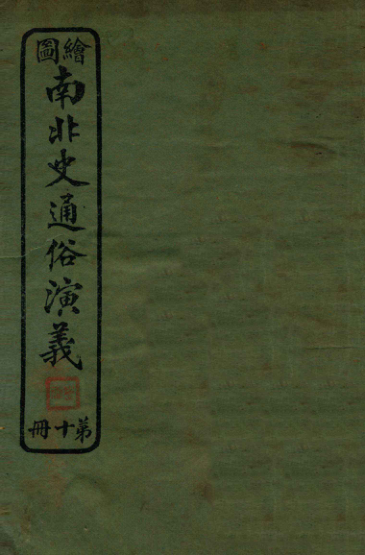 繪圖
南北史通俗演義
第十冊